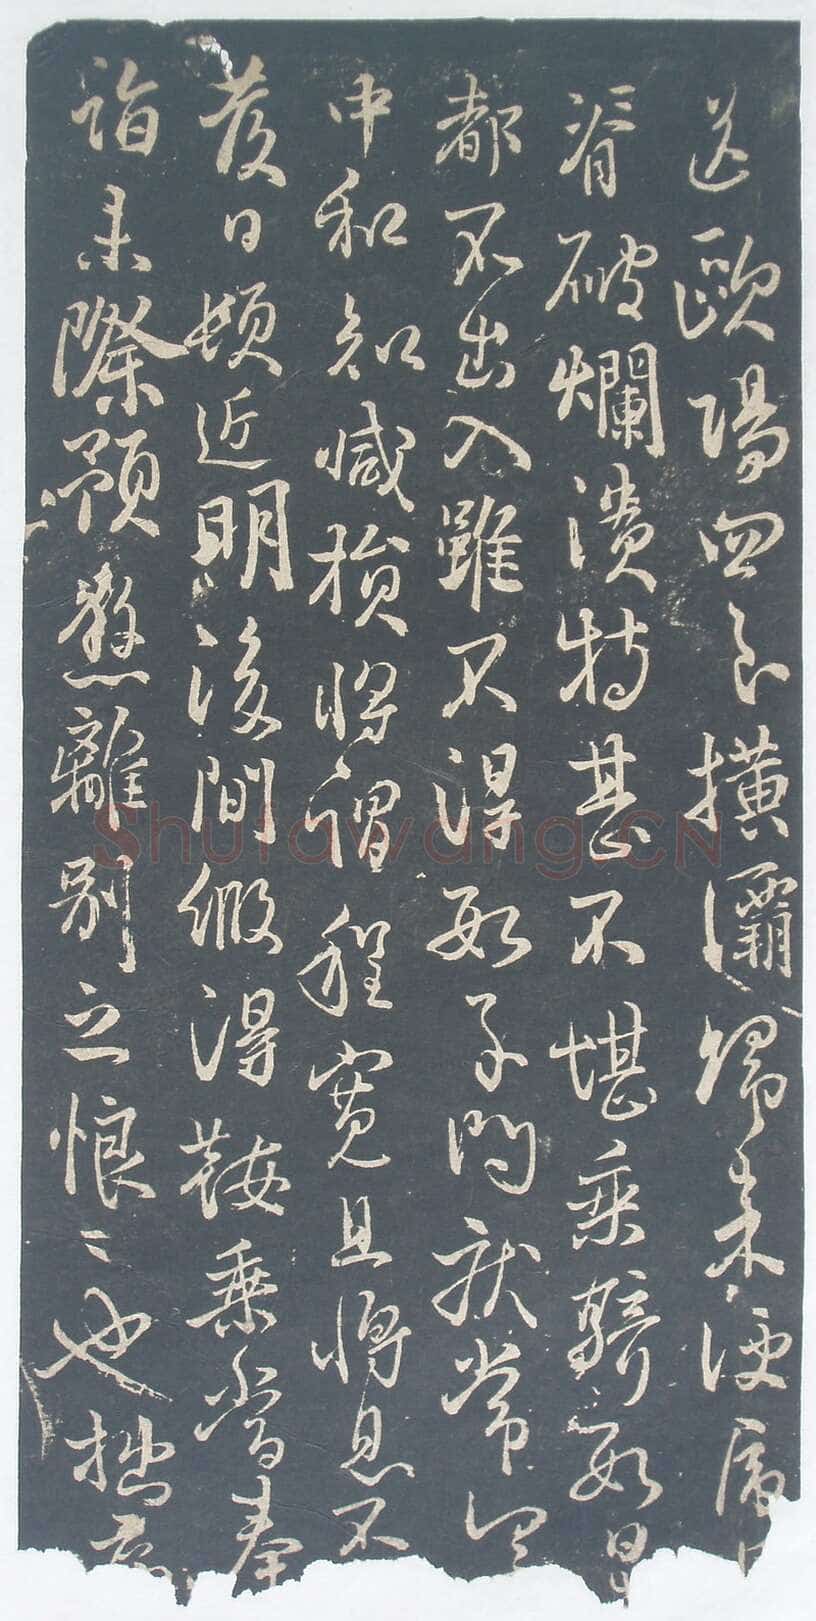 送歐陽四郎橫灞歸來便屬
脊破爛潰特甚不堪乘騎數日
都不出入雖不得數子問狀常
中和知減損將謂程寬且將息不
發日頓近明後間緻得鞍乘當奉
詣未際預愁離別之恨〻也拙
Shufawang.CN